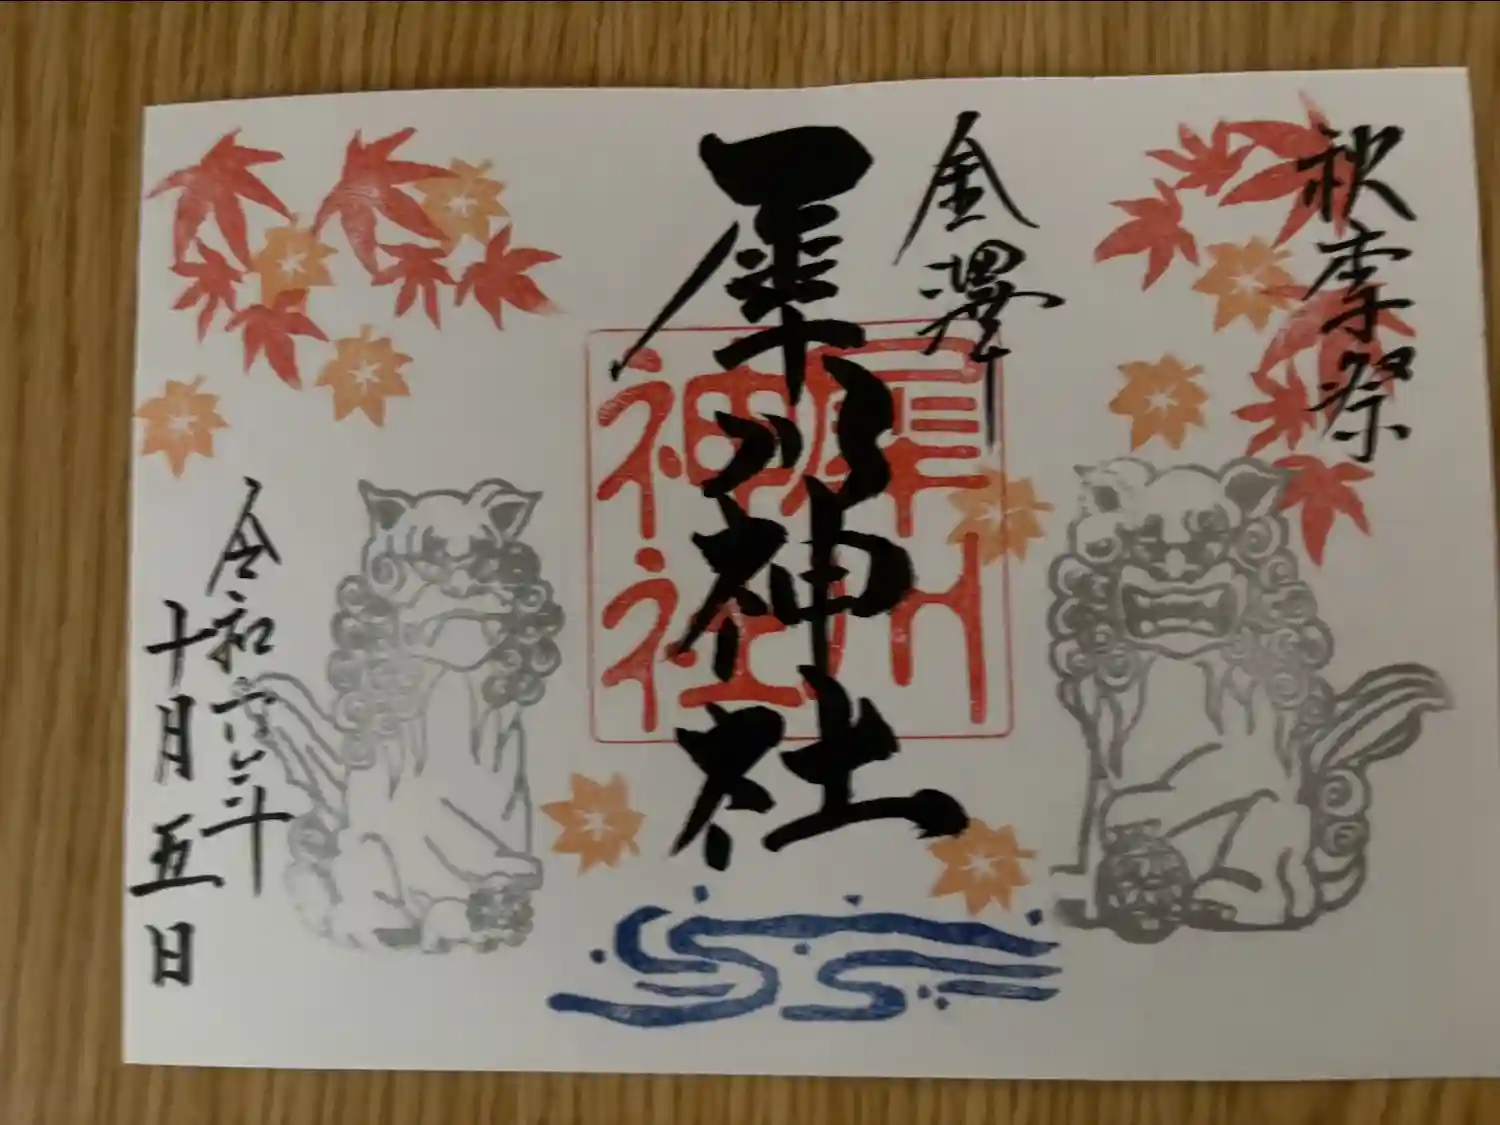 秋季祭
金澤
犀川神社
犀川
神社
令和六年
十月五日